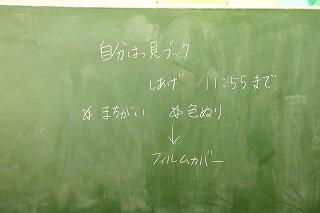 自分はっ見ブック
しあげ 11:55まで
☆まちがい ☆色ぬり
↓
フィルムカバー